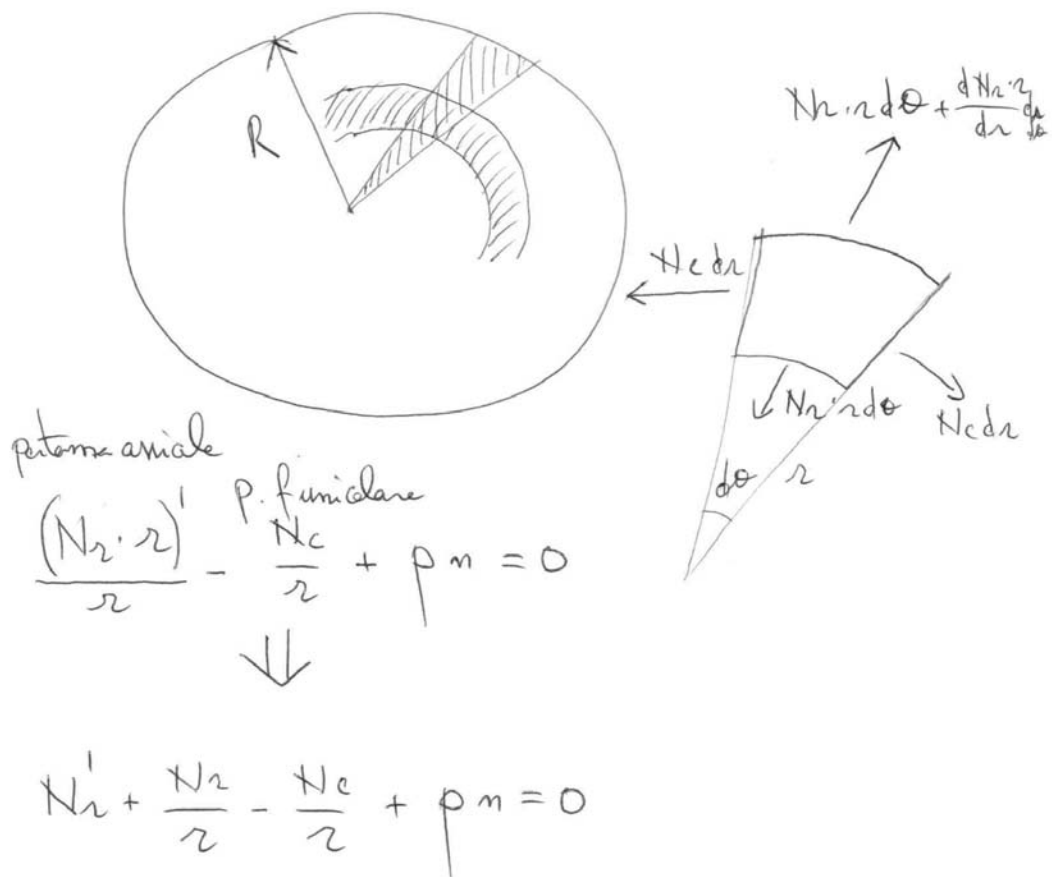 R
Nr·r dθ + dNr·r/dr dr dθ
Nc dr
Nr·r dθ
Nc dr
dθ r
portanza assiale
p. funicolare
(Nr·r)'/r - Nc/r + pn = 0
⇓
Nr' + Nr/r - Nc/r + pn = 0